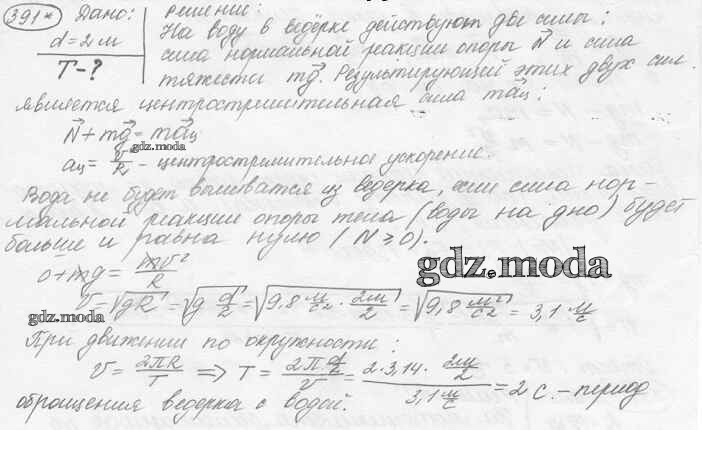 391* Дано: Решение:
d=2м На воду в ведёрке действуют две силы:
T-? сила нормальной реакции опоры N⃗ и сила
тяжести mg⃗. Результирующей этих двух сил
является центростремительная сила ma⃗ц:
N⃗+mg⃗=ma⃗ц
gdz.moda
aц=v²/R - центростремительное ускорение.
Вода не будет выливатся из ведерка, если сила нор-
мальной реакции опоры тела (воды на дно) будет
больше и равна нулю (N≥0).
gdz.moda
0+mg=mv²/R
v=√gR=√g d/2=√9,8 м/с2 · 2м/2=√9,8 м2/с2=3,1 м/с
gdz.moda
При движении по окружности:
v=2πR/T ⟹ T=2π d/2/v=2·3,14·2м/2/3,1 м/с=2 с.-период
обращения ведерка с водой.